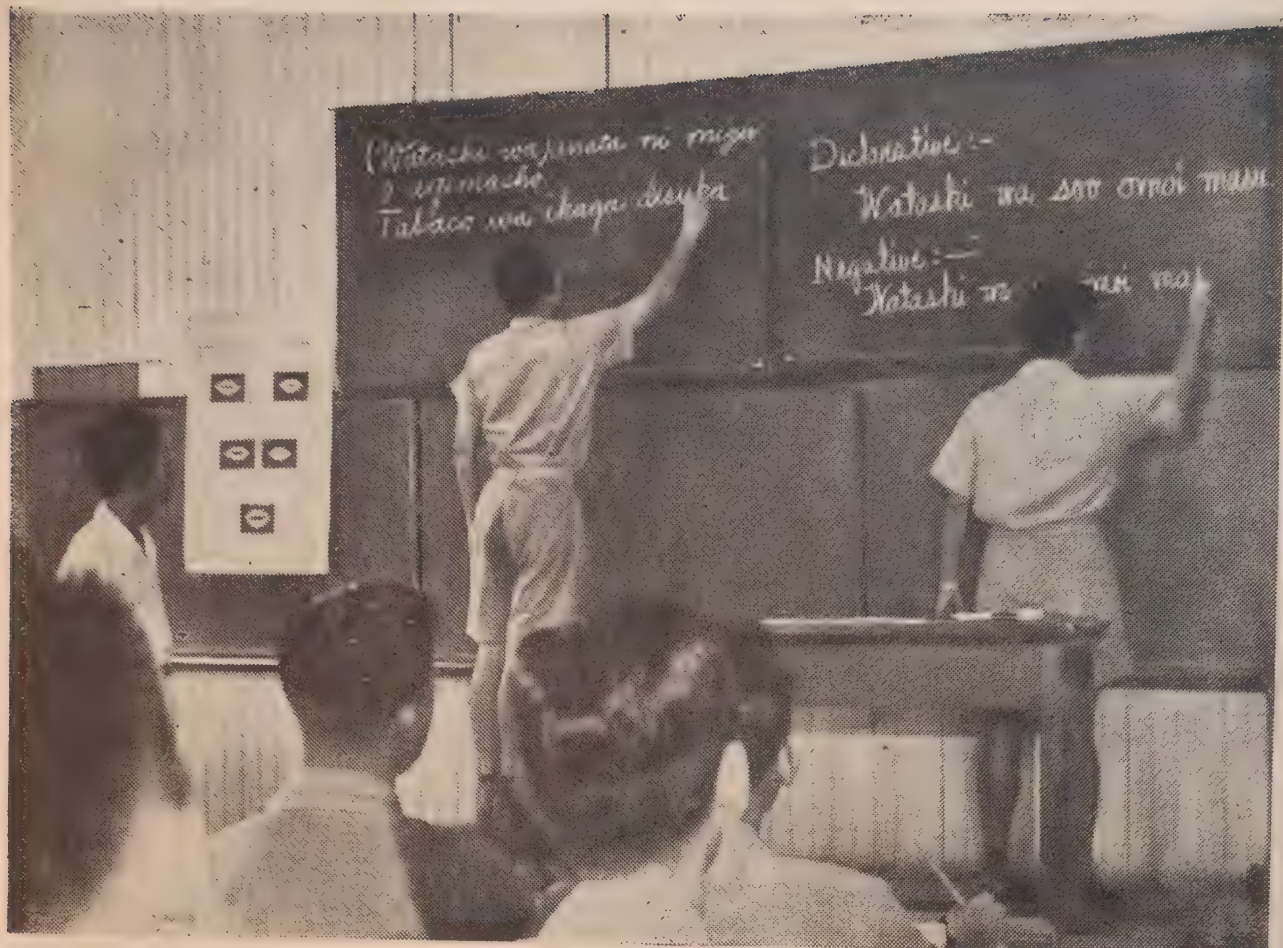 Watashi wa anata ni mizu
o agemasho
Tabaco wa ikaga desuka
Declarative:-
Watashi wa soo omoi masu
Negative:-
Watashi omoi mas